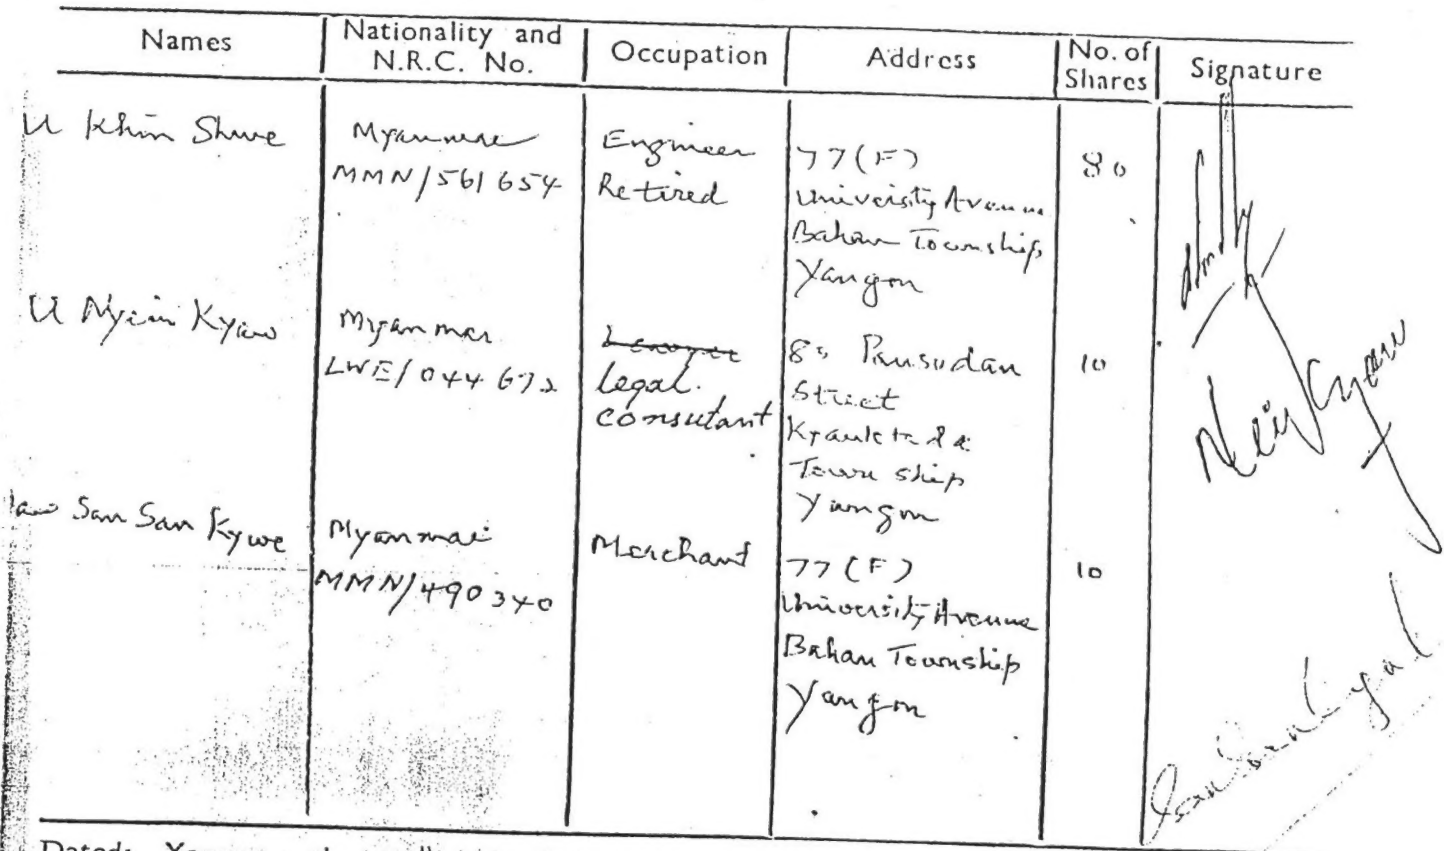 Names
Nationality and
N.R.C. No.
Occupation
Address
No. of
Shares
Signature
U Khin Shwe
Myanmar
MMN/561654
Engineer
Retired
77(F)
University Avenue
Bahan Township
Yangon
80
U Nyein Kyaw
Myanmar
LWE/044672
Legal
consutant
80 Pansodan
Street
Kyauktada
Town ship
Yangon
10
Nein Kyaw
Daw San San Kywe
Myanmar
MMN/490340
Merchant
77(F)
University Avenue
Bahan Township
Yangon
10
Dated: Yangon